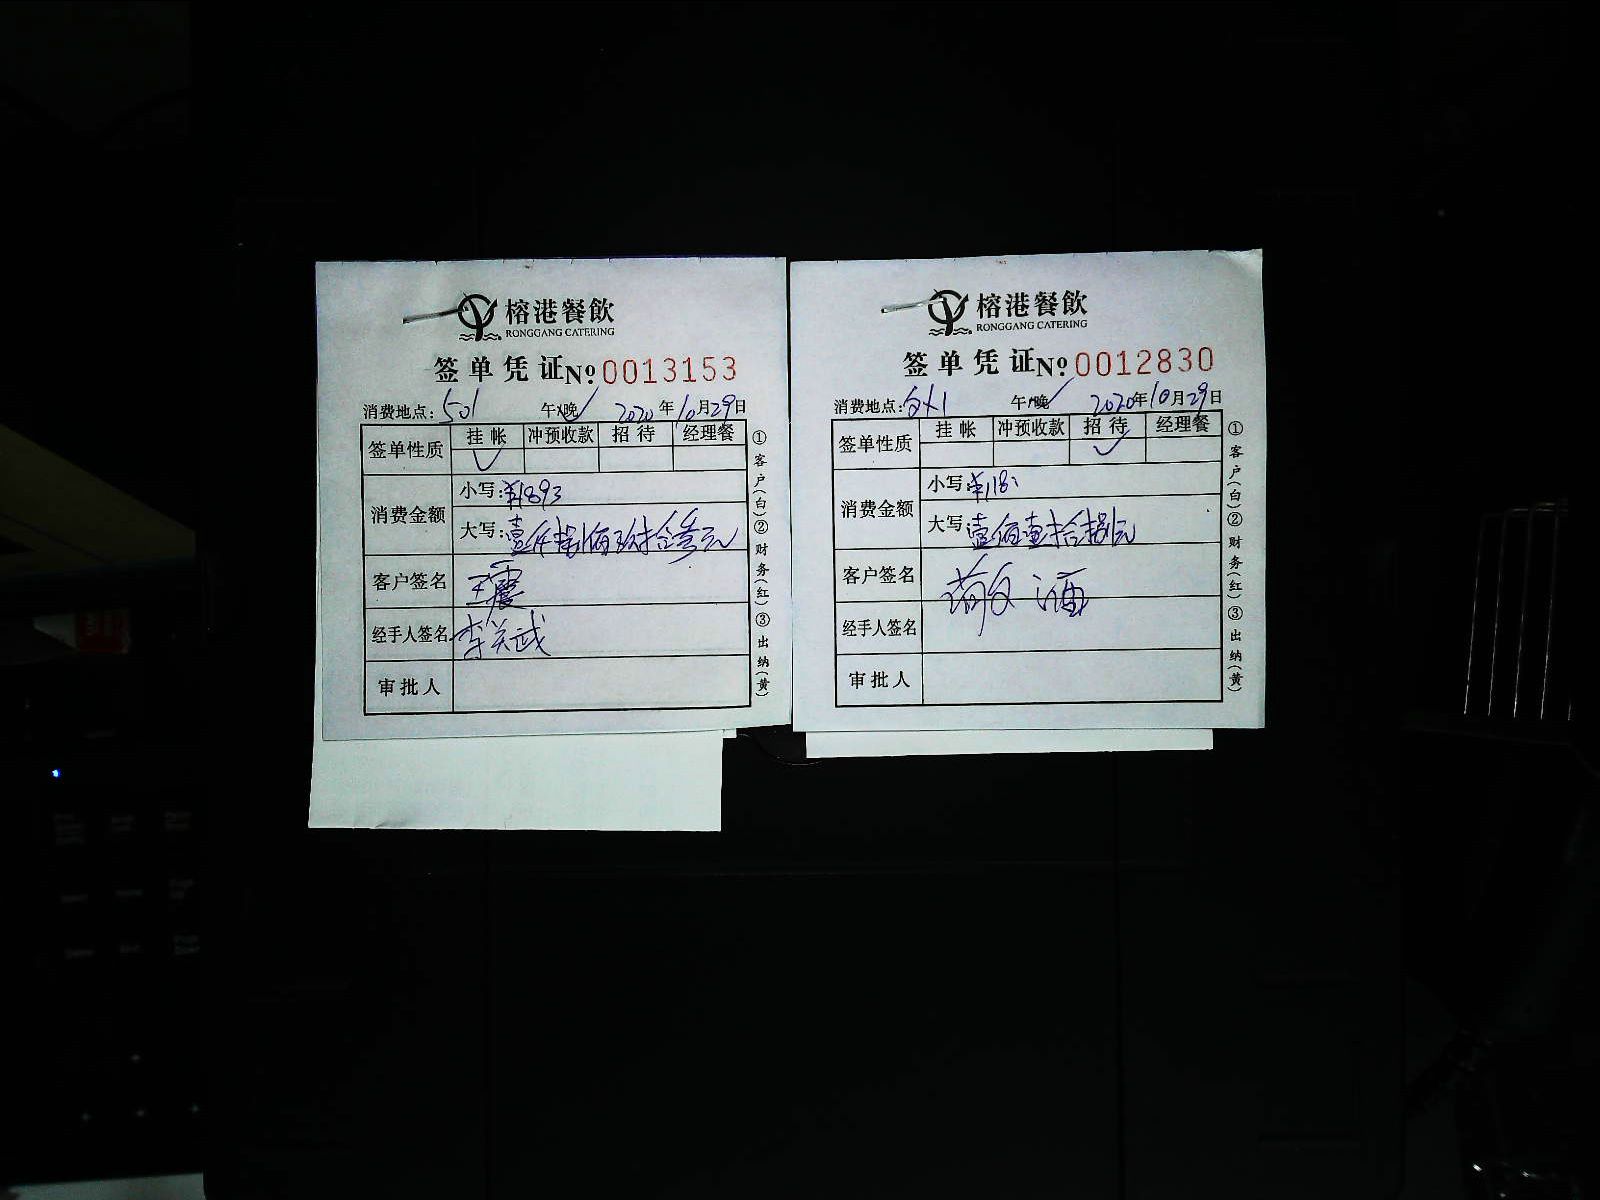 榕港餐飲
RONGGANG CATERING
签单凭证 No 0013153
消费地点: 501 午/晚 2020年10月29日
签单性质 挂帐 冲预收款 招待 经理餐
消费金额
小写: ¥1893
大写: 壹仟捌佰玖拾叁元
客户签名 王震
经手人签名 李关武
审批人
①客户(白)②财务(红)③出纳(黄)
榕港餐飲
RONGGANG CATERING
签单凭证 No 0012830
消费地点: 午/晚 2020年10月29日
签单性质 挂帐 冲预收款 招待 经理餐
消费金额
小写: ¥118
大写: 壹佰壹拾捌元
客户签名 敬酒
经手人签名
审批人
①客户(白)②财务(红)③出纳(黄)